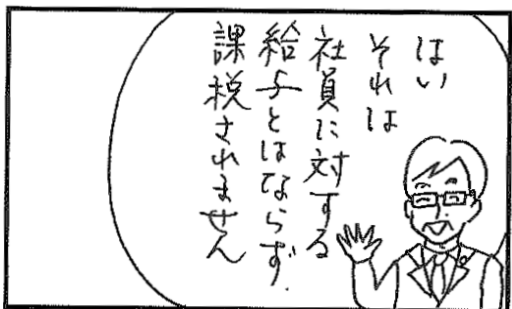 はい
それは
社員に対する
給与とはならず.
課税されません